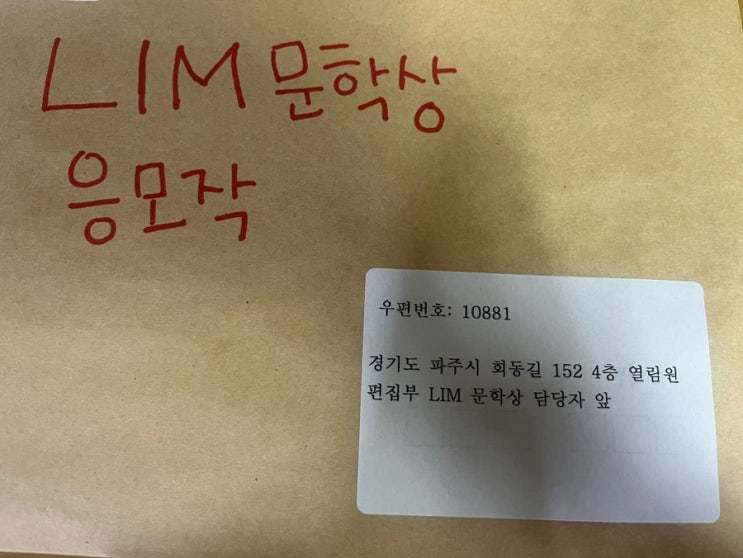 LIM 문학상
응모작
우편번호: 10881
경기도 파주시 회동길 152 4층 열림원
편집부 LIM 문학상 담당자 앞